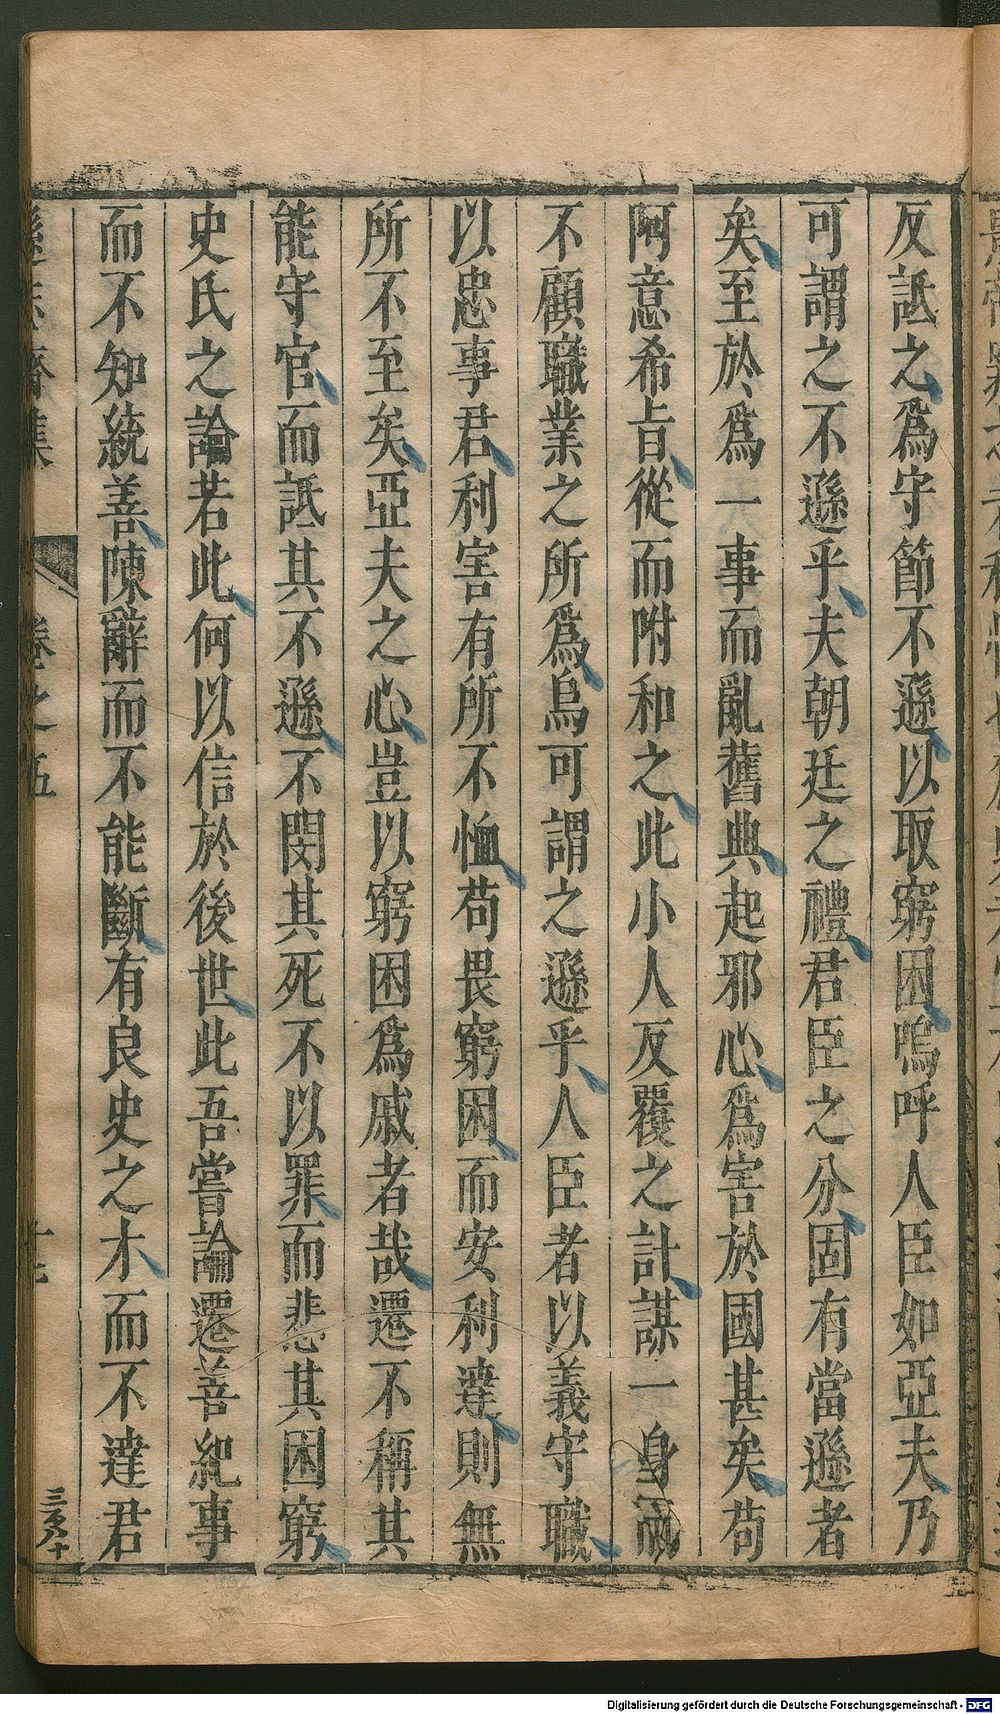 反詆之爲守節不遜以取窮困嗚呼人臣如亞夫乃
可謂之不遜乎夫朝廷之禮君臣之分固有當遜者
矣至於爲一事而亂舊典起邪心爲害於國甚矣苟
阿意希旨從而附和之此小人反覆之計謀一身而
不顧職業之所爲烏可謂之遜乎人臣者以義守職
以忠事君利害有所不恤苟畏窮困而安利達則無
所不至矣亞夫之心豈以窮困爲戚者哉遷不稱其
能守官而詆其不遜不閔其死不以罪而悲其困窮
史氏之論若此何以信於後世此吾嘗論遷善紀事
而不知統善陳辭而不能斷有良史之才而不達君
遜志齋集
卷之五
十七
三百六十
Digitalisierung gefördert durch die Deutsche Forschungsgemeinschaft - DFG